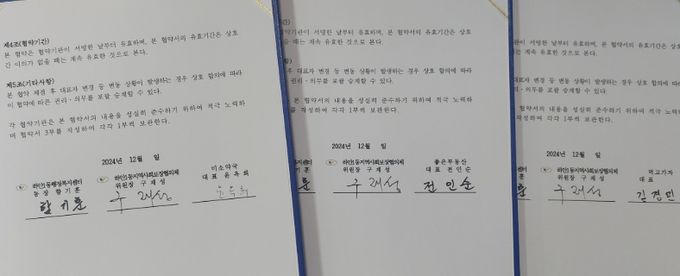 제4조(협약기간)
본 협약은 협약기관이 서명한 날부터 유효하며, 본 협약서의 유효기간은 상호
간 이의가 없을 때는 계속 유효한 것으로 본다.
제5조(기타사항)
본 협약 체결 후 대표자 변경 등 변동 상황이 발생하는 경우 상호 합의에 따라
이 협약에 따른 권리·의무를 포괄 승계할 수 있다.
각 협약기관은 본 협약서의 내용을 성실히 준수하기 위하여 적극 노력하
며 협약서 3부를 작성하여 각각 1부씩 보관한다.
2024년 12월 일
하안1동행정복지센터
동장 함기훈
하안1동지역사회보장협의체
위원장 구재성
미소약국
대표 윤옥희
함기훈
구재성
기간)
서명한 날부터 유효하며, 본 협약서의 유효기간은 상호
때는 계속 유효한 것으로 본다.
후 대표자 변경 등 변동 상황이 발생하는 경우 상호 합의에 따라
권리·의무를 포괄 승계할 수 있다.
본 협약서의 내용을 성실히 준수하기 위하여 적극 노력하
를 작성하여 각각 1부씩 보관한다.
2024년 12월 일
하안1동지역사회보장협의체
위원장 구재성
좋은부동산
대표 전인순
구재성
전인순
유효하며, 본 협약서의 유효기간은 상호
유효한 것으로 본다.
변경 등 변동 상황이 발생하는 경우 상호 합의에 따라
포괄 승계할 수 있다.
내용을 성실히 준수하기 위하여 적극 노력하
각각 1부씩 보관한다.
2024년 12월 일
하안1동지역사회보장협의체
위원장 구재성
먹고가자
대표
구재성
김경민